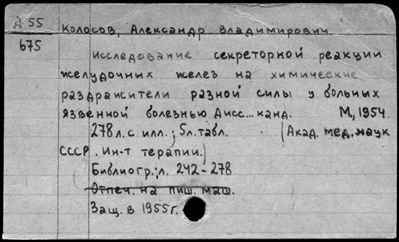 Д 55
675
Колосов, Александр Владимирович.
Исследование секреторной реакции
желудочных желез на химические
раздражители разной силы у больных
язвенной болезнью Дисс... канд. М, 1954.
278 л. с илл.; 5л. табл. (Акад. мед. наук
СССР. Ин-т терапии.)
Библиогр.: л. 242-278
Отпеч. на пиш. маш.
Защ. в 1955г.